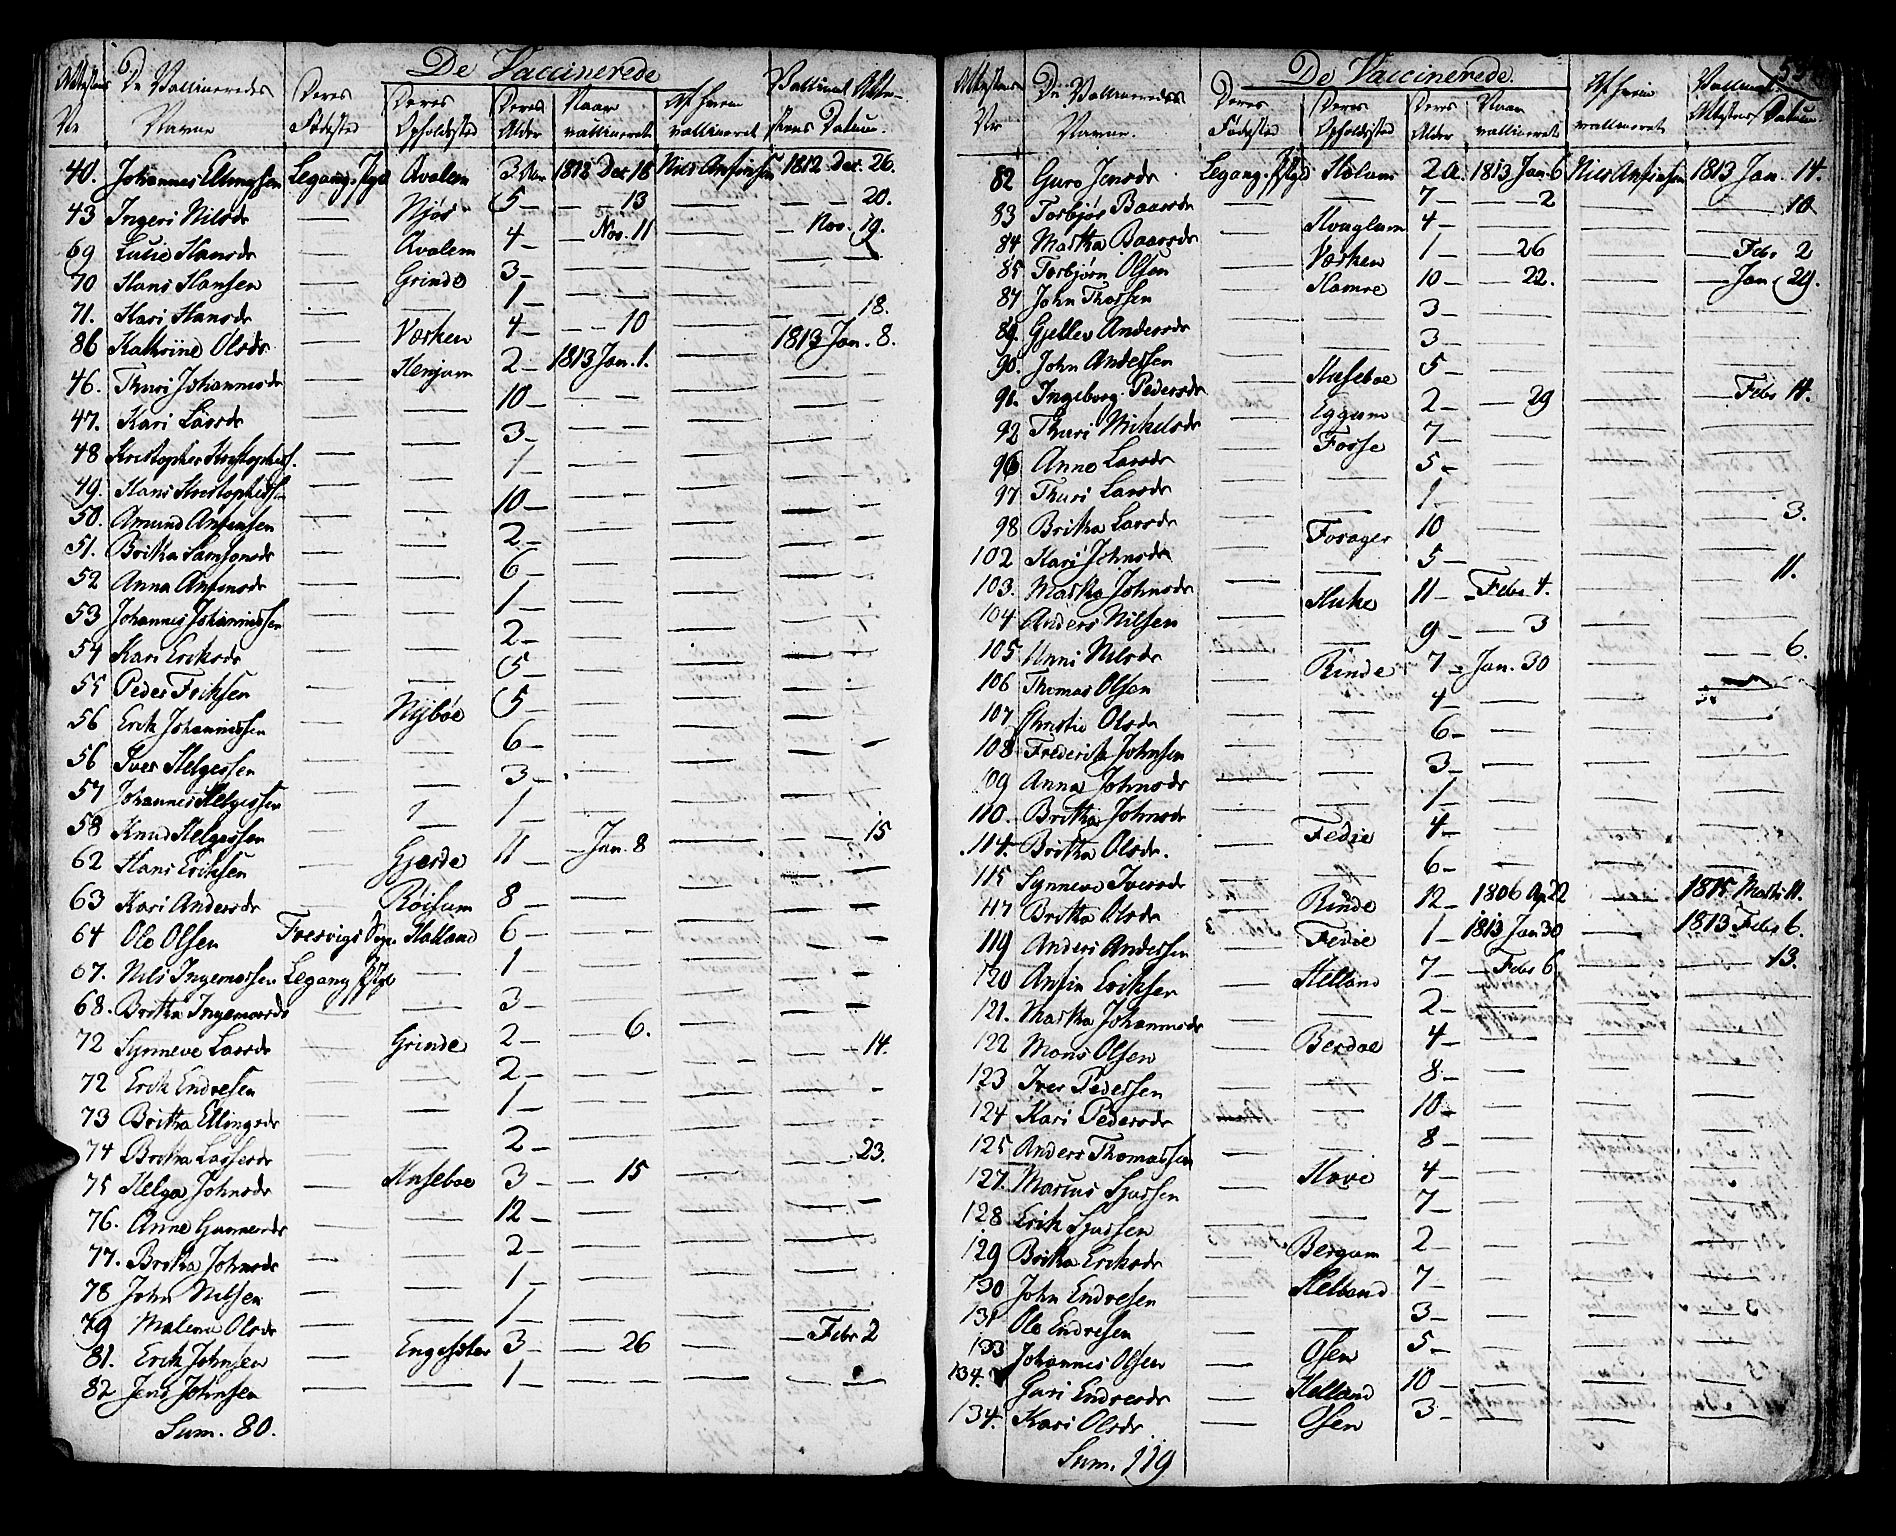 De Vaccinerede
Attestens No
De Vaccineredes Navne
Deres Fødested
Deres Opholdssted
Deres Alder
Naar vaccineret
Af hvem vaccineret
Vaccinat. Attestens Datum
40. Johannes Ellingsen Leganger Pgld Qvalem 3 1812 Dec. 18 Nils Anfinsen 1812 Dec. 26.
43 Ingeri Nilsdr — Njøs 5 — — 13 — — — 20.
69 Lucie Hansdr — Qvalem 4 — — Nov. 11 — — Nov. 19.
70 Hans Hansen — Grinde 3 — — — — —
71. Kari Hansdr — — 1 — — — — — 18.
86 Kathrine Olsdr — Værken 4 — — — 10 — 1813 Jan. 8.
46. Thuri Johannesdr — Henjum 2 — 1813 Jan. 1. — — —
47. Kari Larsdr — — 10 — — — — —
48 Kristopher Kristophers. — — 3 — — — — —
49. Hans Kristophersen — — 1 — — — — —
50. Amund Anfinsen — — 10 — — — — —
51. Britha Samsonsdr — — 2 — — — — —
52 Anna Anfinsdr — — 6 — — — — —
53 Johannes Johannessen — — 1 — — — — —
54 Kari Eriksdr — — 2 — — — — —
55 Peder Eriksen — — 5 — — — — —
56 Erik Johannessen — Nybøe 5 — — — — —
56 Iver Helgesen — — 6 — — — — —
57 Johannes Helgessen — — 3 — — — — —
58 Knud Helgessen — — 1 — — — — —
62 Hans Eriksen — Gjerde 11 — — Jan. 8 — — — 15
63 Kari Andersdr — Røisum 8 — — — — —
64 Ole Olsen Fresvigs Sogn Hatland 6 — — — — —
67. Nils Ingemarsen Legang Pgld — 1 — — — — —
68. Britha Ingemarsdr — — 3 — — — — —
72 Synneve Larsdr — Grinde 2 — — 6. — — — 14.
72 Erik Endresen — — 2 — — — — —
73 Britha Ellingsdr — — 1 — — — — —
74 Britha Lassesdr — — 2 — — — — — 23.
75 Helga Johnsdr — Huseboe 3 — — 15 — — —
76. Anne Gunnersdr — — 12 — — — — —
77. Britha Johnsdr — — 2 — — — — —
78 John Nilsen — — 1 — — — — —
79 Malena Olsdr — — 1 — — — — —
81. Erik Johnsen — Engesæter 3 — — 26 — — Febr 2
82 Jens Johnsen — — 1 — — — — —
Sum. 80.
De Vaccinerede
Attestens No
De Vaccineredes Navne.
Deres Fødested
Deres Opholdssted
Deres Alder
Naar vaccineret
Af hvem vaccineret
Vaccinat. Attestens Datum
82 Guro Jensdr Legang. Pgld Holum 2 A. 1813 Jan. 6 Nils Anfinsen 1813 Jan. 14.
83 Torbjør Baarsdr — — 7 — — 2 — — 10
84 Martha Baarsdr — 4 — — — —
85 Torbjørn Olsen — Værken 1 — — 26 — — Febr 2
87 John Thorsen — Hamre 10 — — 22. — — Jan. 29.
89. Gjellev Andersdr — — 3 — — — —
90. John Andersen — — 3 — — — —
91. Ingeborg Pedersdr — Huseboe 5 — — — —
92 Thuri Mikelsdr — Eggum 2 — — 29 — — Febr 4.
96 Anne Larsdr — Forse 7 — — — —
97 Thuri Larsdr — — 5 — — — —
98 Britha Larsdr — — 1 — — — — 3.
102 Kari Johnsdr — 10 — — —
103. Martha Johnsdr — — 5 — — — — 11.
104 Anders Nilsen — Huke 11 — Febr. 4. — —
105 Unni Nilsdr — — 9 — — 3 — — — 6.
106 Thomas Olsen — Rinde 7 — Jan. 30 —
107 Christie Olsdr — — 4 — — — —
108 Frederik Johnsen — — 6 — — — —
109 Anna Johnsdr — — 3 — — — —
110. Britha Johnsdr — — 1 — — — —
114. Britha Olsdr. — Fedie 4 — — — —
115 Synneve Iversdr — — 6 — — — —
117 Britha Olsdr — Rinde 12 — 1806 Ap 22 — 1815 Marti 11.
119 Anders Andersen — Fedie 1 — 1813 Jan 30 — 1813 Febr 6.
120 Anfin Eriksen — Helland 7 — — Febr 6 — — 13.
121. Martha Johannesdr — — 2 — — — —
122 Mons Olsen — Berdoe 4 — — — —
123 Iver Pedersen — — 8 — — — —
124 Kari Pedersdr — — 10 — — — —
125 Anders Thomassen — — 8 — — — —
127. Marcus Sjursen — Hove 4 — — — —
128 Erik Sjursen — — 7 — — — —
129 Britha Eriksdr — Bergum 2 — — — —
130 John Endresen — Helland 7 — — — —
131 Ole Endresen — — 3 — — — —
133 Johannes Olsen — Osen 5 — — — —
134. Guri Endresdr — Helland 10 — — — —
134. Kari Olsdr. — Osen 3 — — — —
Sum. 119